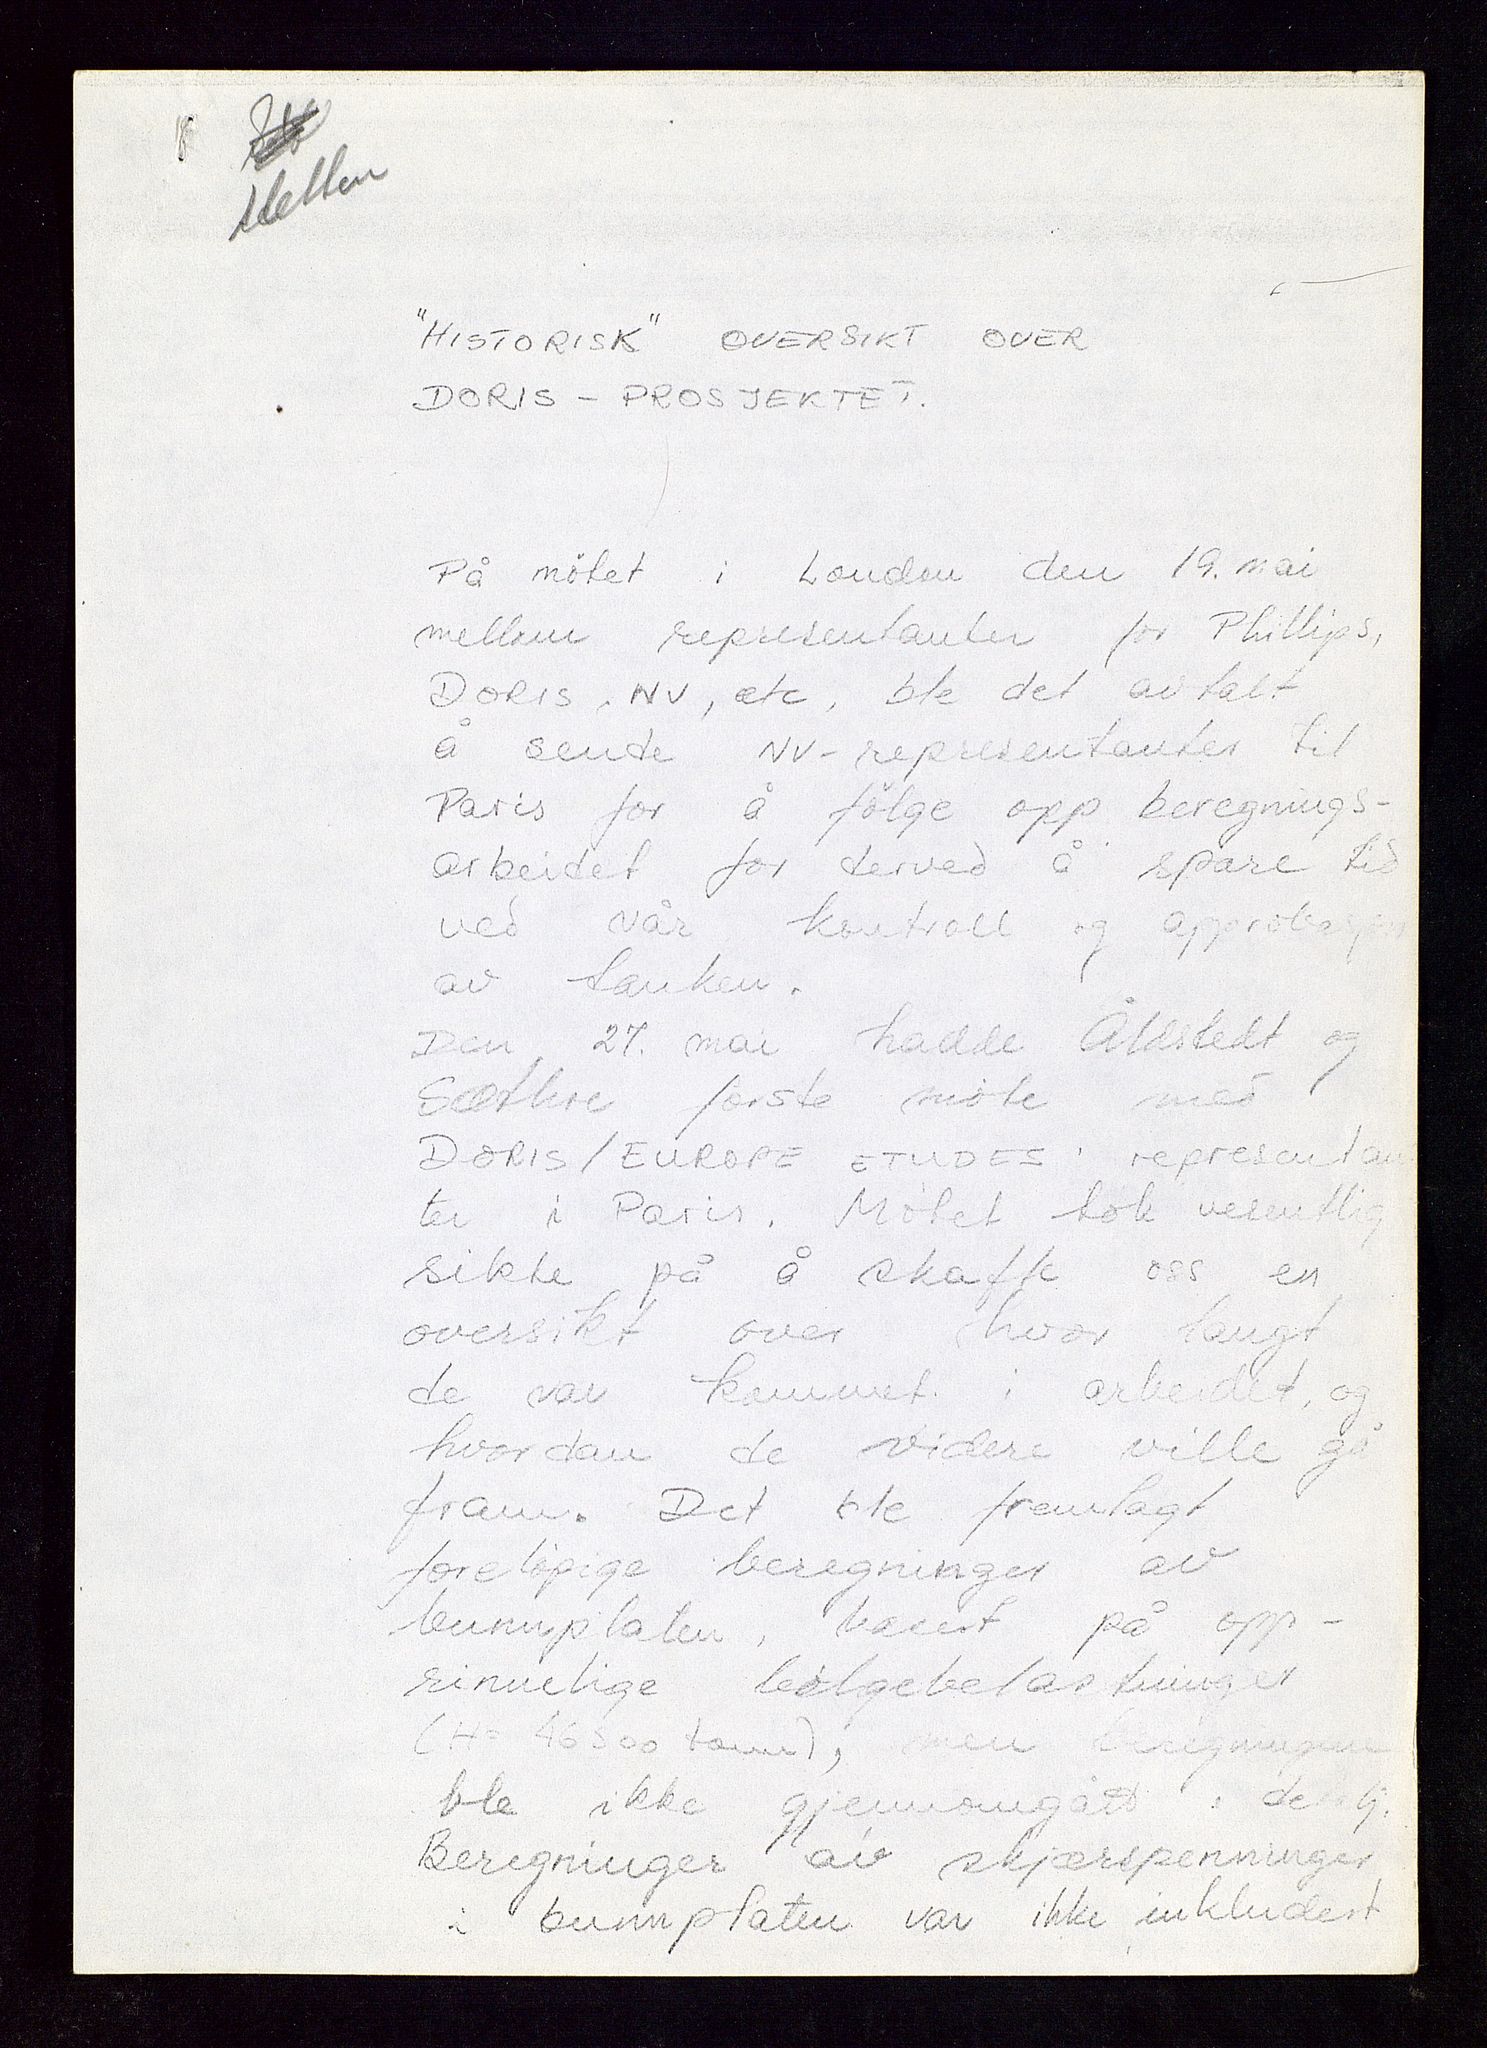 "HISTORISK" OVERSIKT OVER
DORIS - PROSJEKTET.
På mötet i London den 19. mai
mellom representanter for Phillips,
DORIS, NV, etc, ble det avtalt
å sende NV-representanter til
Paris for å fölge opp beregnings-
arbeidet for derved å spare tid
ved vår kontroll og approbasjon
av tanken.
Den 27. mai hadde Åldstedt og
Sæthre förste möte med
DORIS/EUROPE ETUDES' representan
ter i Paris. Mötet tok vesentlig
sikte på å skaffe oss en
oversikt over hvor langt
de var kommet i arbeidet, og
hvordan de videre ville gå
fram. Det ble fremlagt
forelöpige beregninger av
bunnplaten, basert på opp-
rinnelige bölgebelastninger
(H= 46500 tonn), men beregningene
ble ikke gjennomgått i detalj.
Beregninger av skjærspenninger
i bunnplaten var ikke inkludert